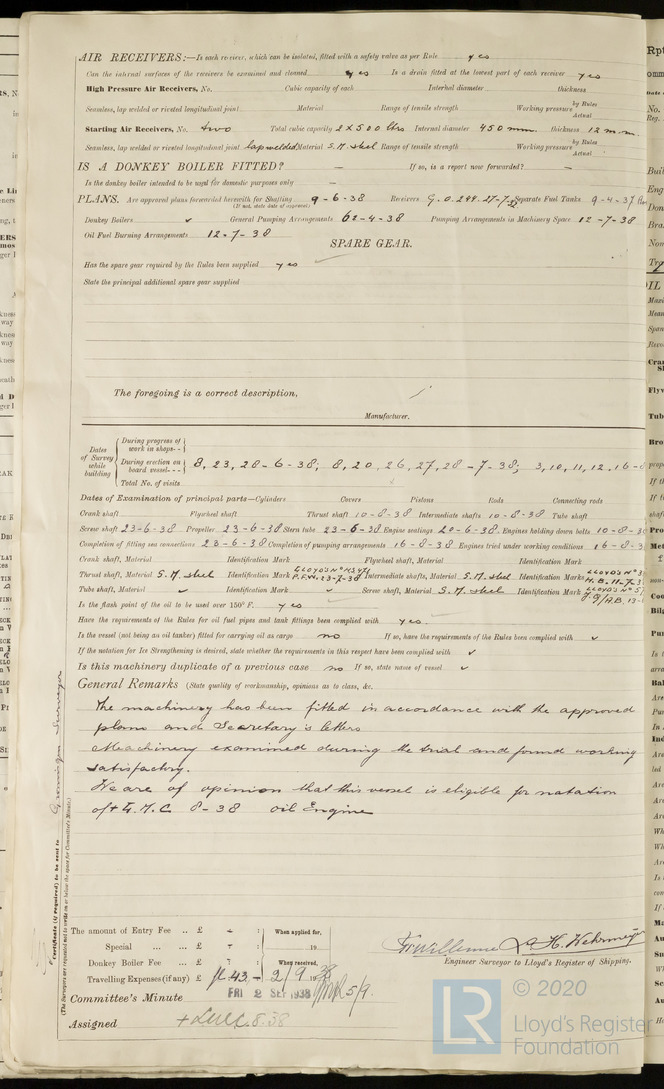 AIR RECEIVERS:—Is each receiver, which can be isolated, fitted with a safety valve as per Rule yes
Can the internal surfaces of the receivers be examined and cleaned yes Is a drain fitted at the lowest part of each receiver yes
High Pressure Air Receivers, No. Cubic capacity of each Internal diameter thickness
Seamless, lap welded or riveted longitudinal joint Material Range of tensile strength Working pressure by Rules Actual
Starting Air Receivers, No. two Total cubic capacity 2 x 500 ltrs Internal diameter 450 mm. thickness 12 m.m.
Seamless, lap welded or riveted longitudinal joint lap welded Material S.M. steel Range of tensile strength Working pressure by Rules Actual
IS A DONKEY BOILER FITTED? — If so, is a report now forwarded? —
Is the donkey boiler intended to be used for domestic purposes only —
PLANS. Are approved plans forwarded herewith for Shafting 9-6-38 Receivers Separate Fuel Tanks 9-4-37
(If not, state date of approval)
Donkey Boilers ✓ General Pumping Arrangements 12-4-38 Pumping Arrangements in Machinery Space 12-7-38
Oil Fuel Burning Arrangements 12-7-38
SPARE GEAR.
Has the spare gear required by the Rules been supplied yes
State the principal additional spare gear supplied
The foregoing is a correct description,
Manufacturer.
Dates of Survey while building
During progress of work in shops - -
During erection on board vessel - - - 8, 23, 28-6-38; 8, 20, 26, 27, 28-7-38; 3, 10, 11, 12, 16-8
Total No. of visits
Dates of Examination of principal parts—Cylinders Covers Pistons Rods Connecting rods
Crank shaft Flywheel shaft Thrust shaft 10-8-38 Intermediate shafts 10-8-38 Tube shaft
Screw shaft 23-6-38 Propeller 23-6-38 Stern tube 23-6-38 Engine seatings 28-6-38. Engines holding down bolts 10-8-3
Completion of fitting sea connections 23-6-38 Completion of pumping arrangements 16-8-38 Engines tried under working conditions 16-8-3
Crank shaft, Material Identification Mark Flywheel shaft, Material Identification Mark
Thrust shaft, Material S.M. steel Identification Mark Intermediate shafts, Material S.M. steel Identification Marks
Tube shaft, Material ✓ Identification Mark ✓ Screw shaft, Material S.M. steel Identification Mark
Is the flash point of the oil to be used over 150° F. yes
Have the requirements of the Rules for oil fuel pipes and tank fittings been complied with yes.
Is the vessel (not being an oil tanker) fitted for carrying oil as cargo no If so, have the requirements of the Rules been complied with ✓
If the notation for Ice Strengthening is desired, state whether the requirements in this respect have been complied with ✓
Is this machinery duplicate of a previous case no If so, state name of vessel ✓
General Remarks (State quality of workmanship, opinions as to class, &c.
The machinery has been fitted in accordance with the approved
plans and Secretary's letters
Machinery examined during the trial and found working
satisfactory.
We are of opinion that this vessel is eligible for notation
of + L.M.C 8-38 oil Engine
Certificate (if required) to be sent to Groningen Surveyor
(The Surveyors are requested not to write on or below the space for Committee's Minute.)
The amount of Entry Fee .. £ : : When applied for,
Special ... ... £ : : 19
Donkey Boiler Fee .. £ : : When received,
Travelling Expenses (if any) £ fl. 43,- 2/9 1938 5/9.
Engineer Surveyor to Lloyd's Register of Shipping.
Committee's Minute FRI 2 SEP 1938
Assigned + LMC. 8.38
LR
© 2020
Lloyd's Register
Foundation